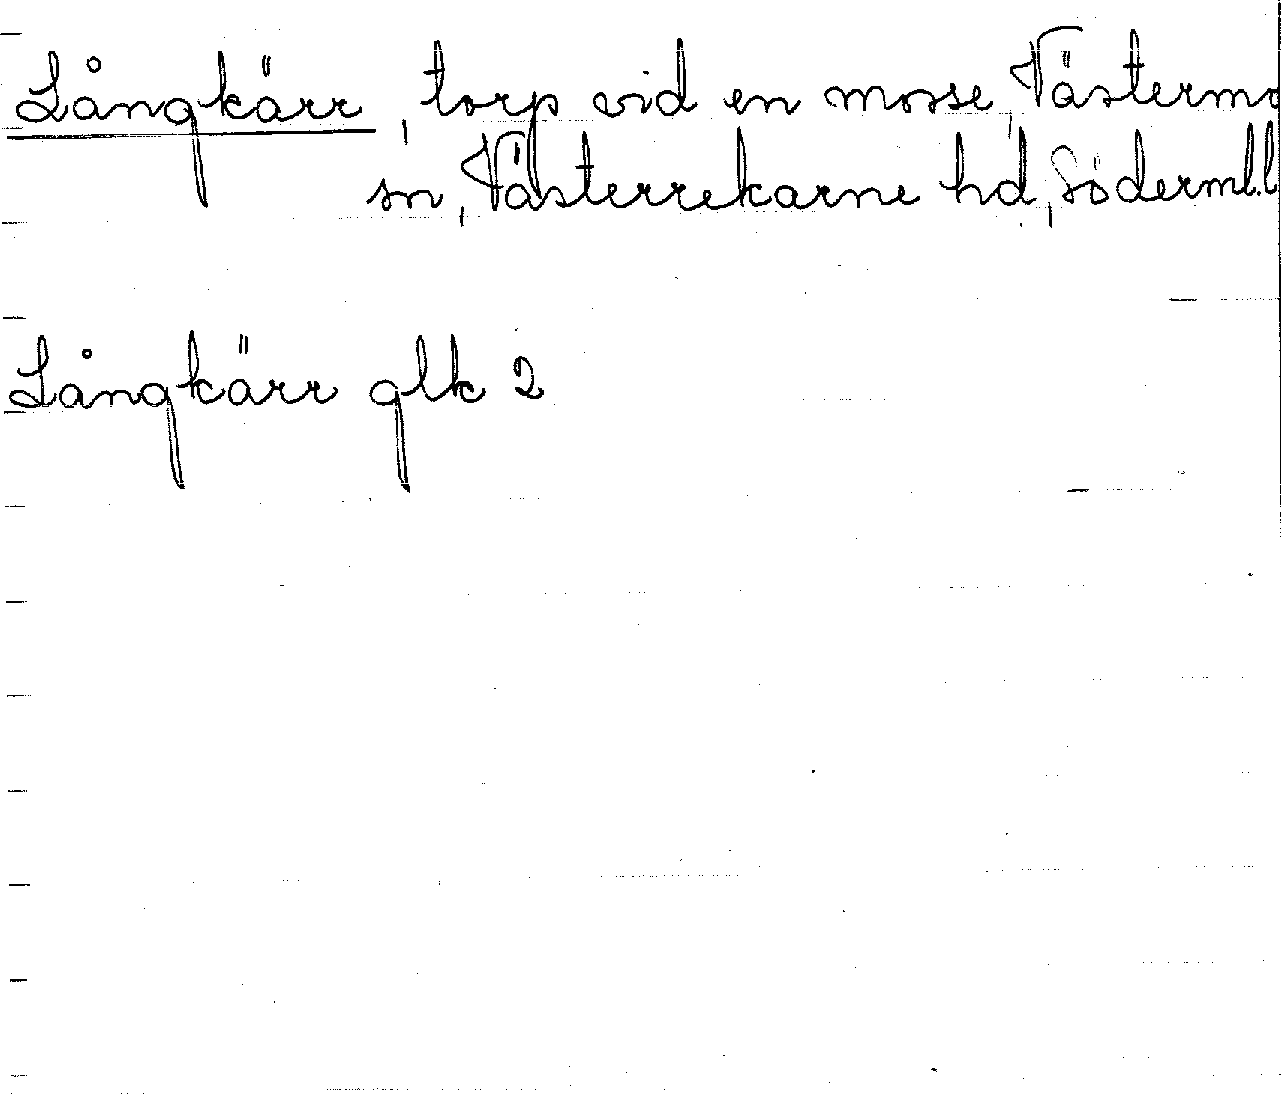 Långkärr, torp vid en mosse, Västermo
sn, Västerrekarne hd, Söderml. l
Långkärr glk 2